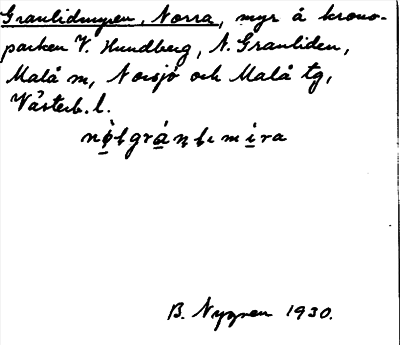 Granlidmyren, Norra, myr å krono-
parken V. Hundberg, N. Granliden,
Malå m, Norsjö och Malå tg,
Västerb. l.
B. Nygren 1930.